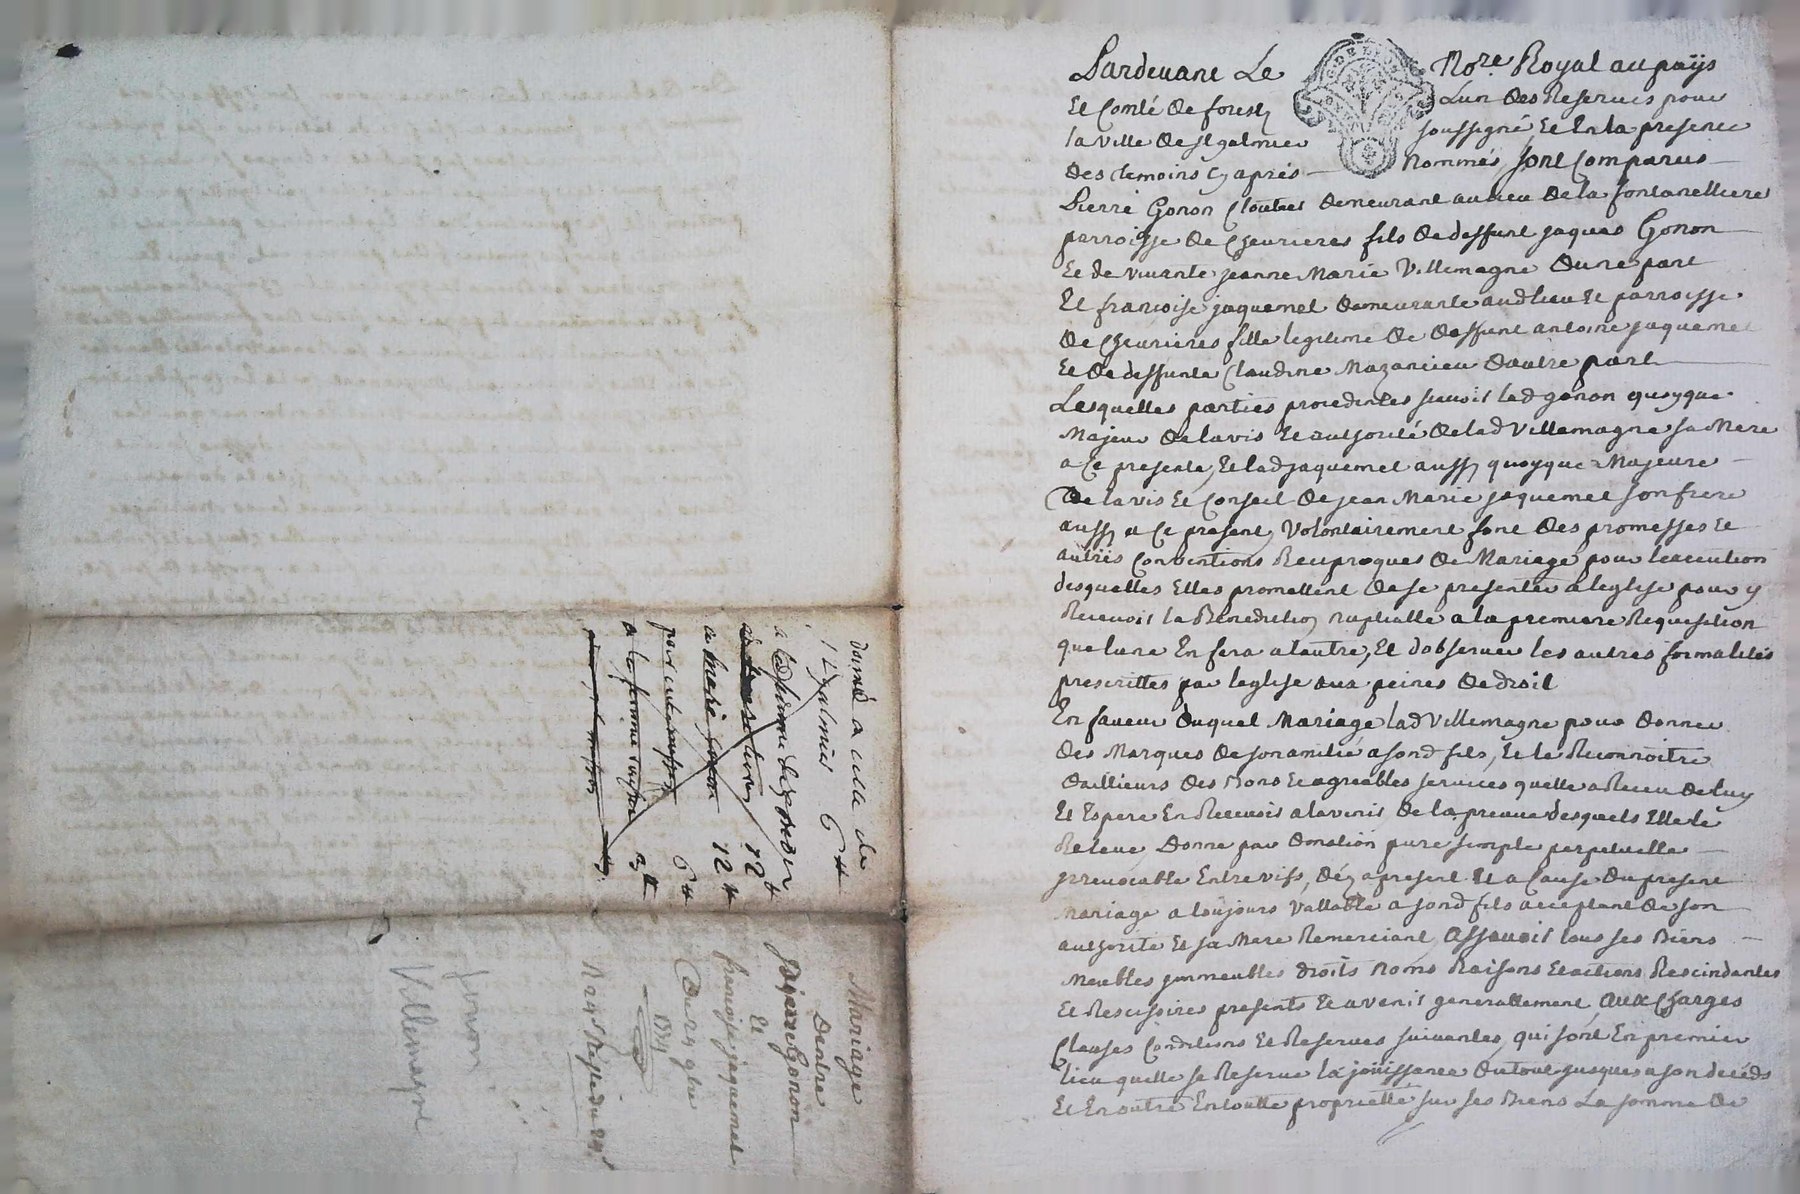 Pardevant Le Nore. Royal au païs
Et Comté de forestz Lun des Reservés pour
la ville de st galmier soussigné Et En la presence
des temoins cy aprés nommés, sont Comparus
Pierre Gonon Cloutier demeurant au lieu de la fontanelliere
parroisse de Chevrieres fils de deffunt jaques Gonon
Et de vivante jeanne Marie Villemagne dune part
Et francoise jaquemet demeurante audlieu Et parroisse
de Chevrieres fille legitime de deffunt antoine jaquemet
Et de deffunte Claudine Mazancieu dautre part
Lesquelles parties procedentes scavoir led gonon quoyque
Majeur de lavis Et authorité de lad Villemagne sa Mere
a Ce presente, Et lad jaquemet aussy quoyque Majeure
de lavis Et Conseil de jean Marie jaquemet son frere
aussy a Ce present, Volontairement font des promesses Et
autres Conventions Reciproques de Mariage pour lexecution
desquelles Elles promettent de se presenter a leglise pour y
Recevoir la Benediction nuptialle a la premiere Requisition
que lune En fera a lautre, Et dobserver les autres formalités
prescrittes par leglise aux peines de droit
En faveur duquel Mariage lad Villemagne pour donner
des Marques de son amitié a sond fils, Et le Reconnoitre
dailleurs des Bons Et agreables services quelle a Receu de luy
Et Espere En Recevoir a lavenir de la preuve desquels Elle le
Releve, Donne par Donation pure simple perpetuelle
jrrevocable Entre vifs, déz a present Et a Cause du present
Mariage a toujours Vallable a sond fils acceptant de son
authorite Et sa Mere Remerciant, Assavoir tous ses Biens
Meubles jmmeubles droits Noms Raisons Et actions Rescindantes
Et Rescisoires presents Et avenir generallement, aux Charges
Clauses Conditions Et Reserves suivantes, qui sont En premier
lieu quelle se Reserve la joüissance du tout jusques a son decéds
Et En outre En toutte proprieté sur ses Biens La somme de
donné a celle de
st galmier 6 #
12 #
a marie gonon 12 #
6 #
Mariage
Dentre
Pierre Gonon
Et
francoise jaquemet
Du 29
gonon
Villemagne